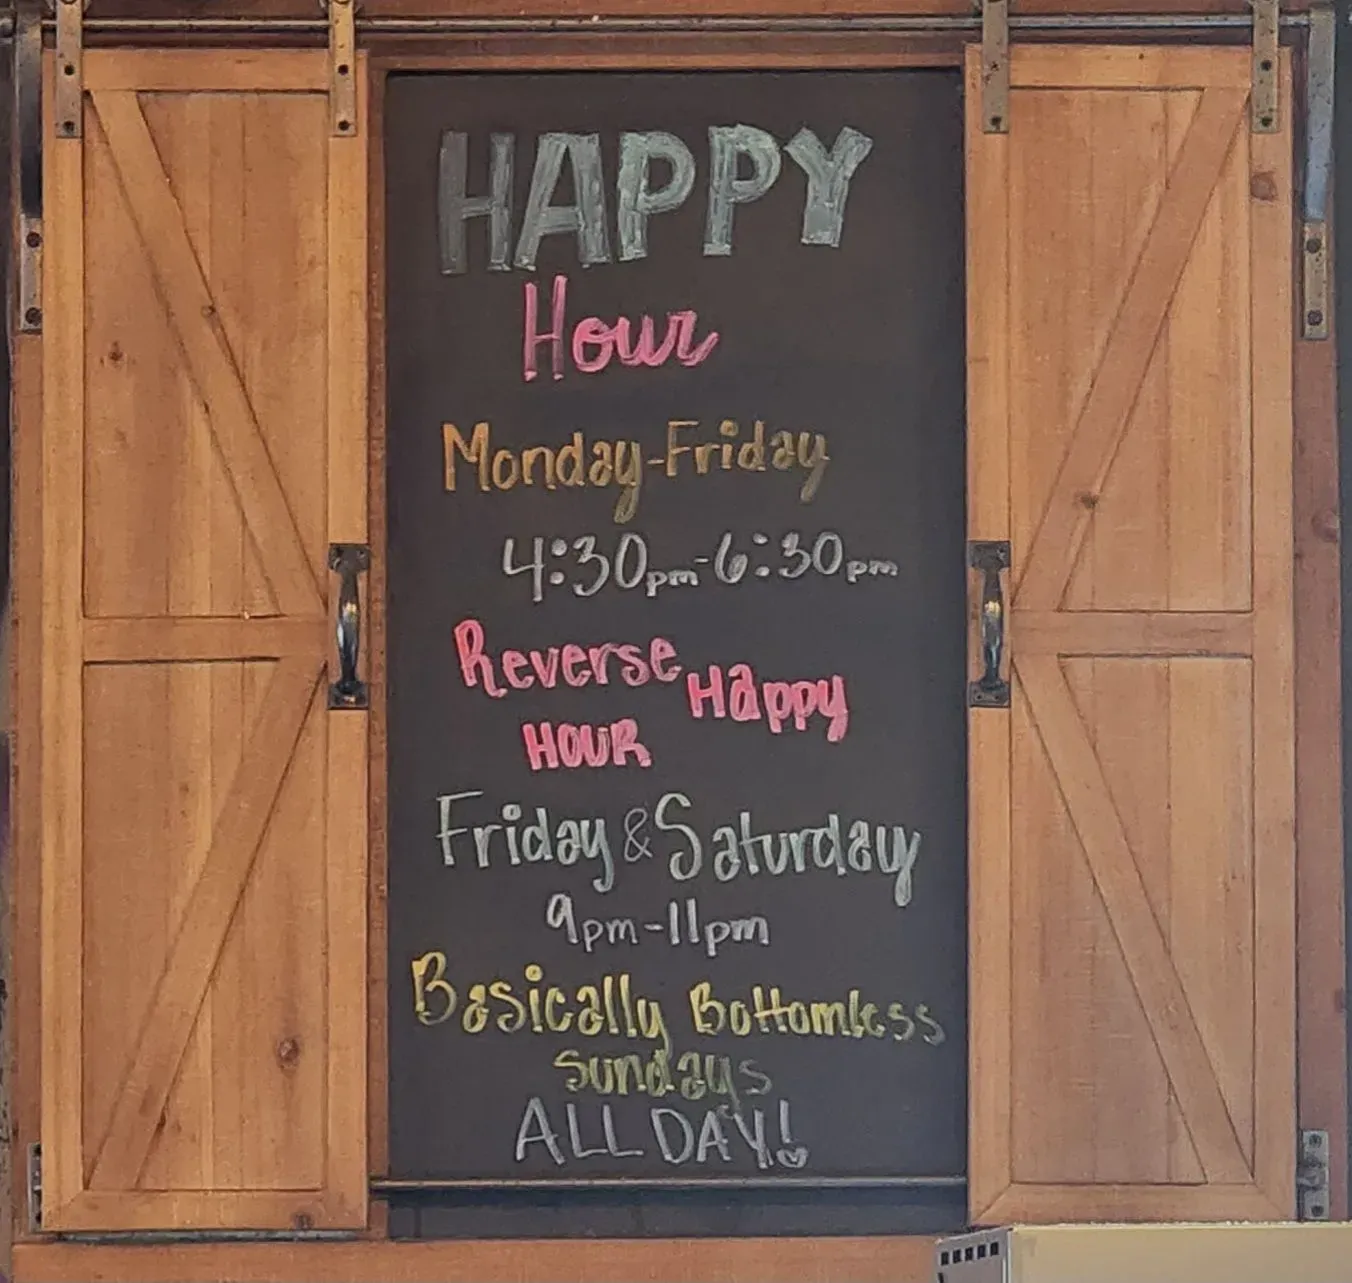 HAPPY
Hour
Monday-Friday
4:30pm-6:30pm
Reverse Happy
HOUR
Friday & Saturday
9pm-11pm
Basically Bottomless
Sundays
ALL DAY!